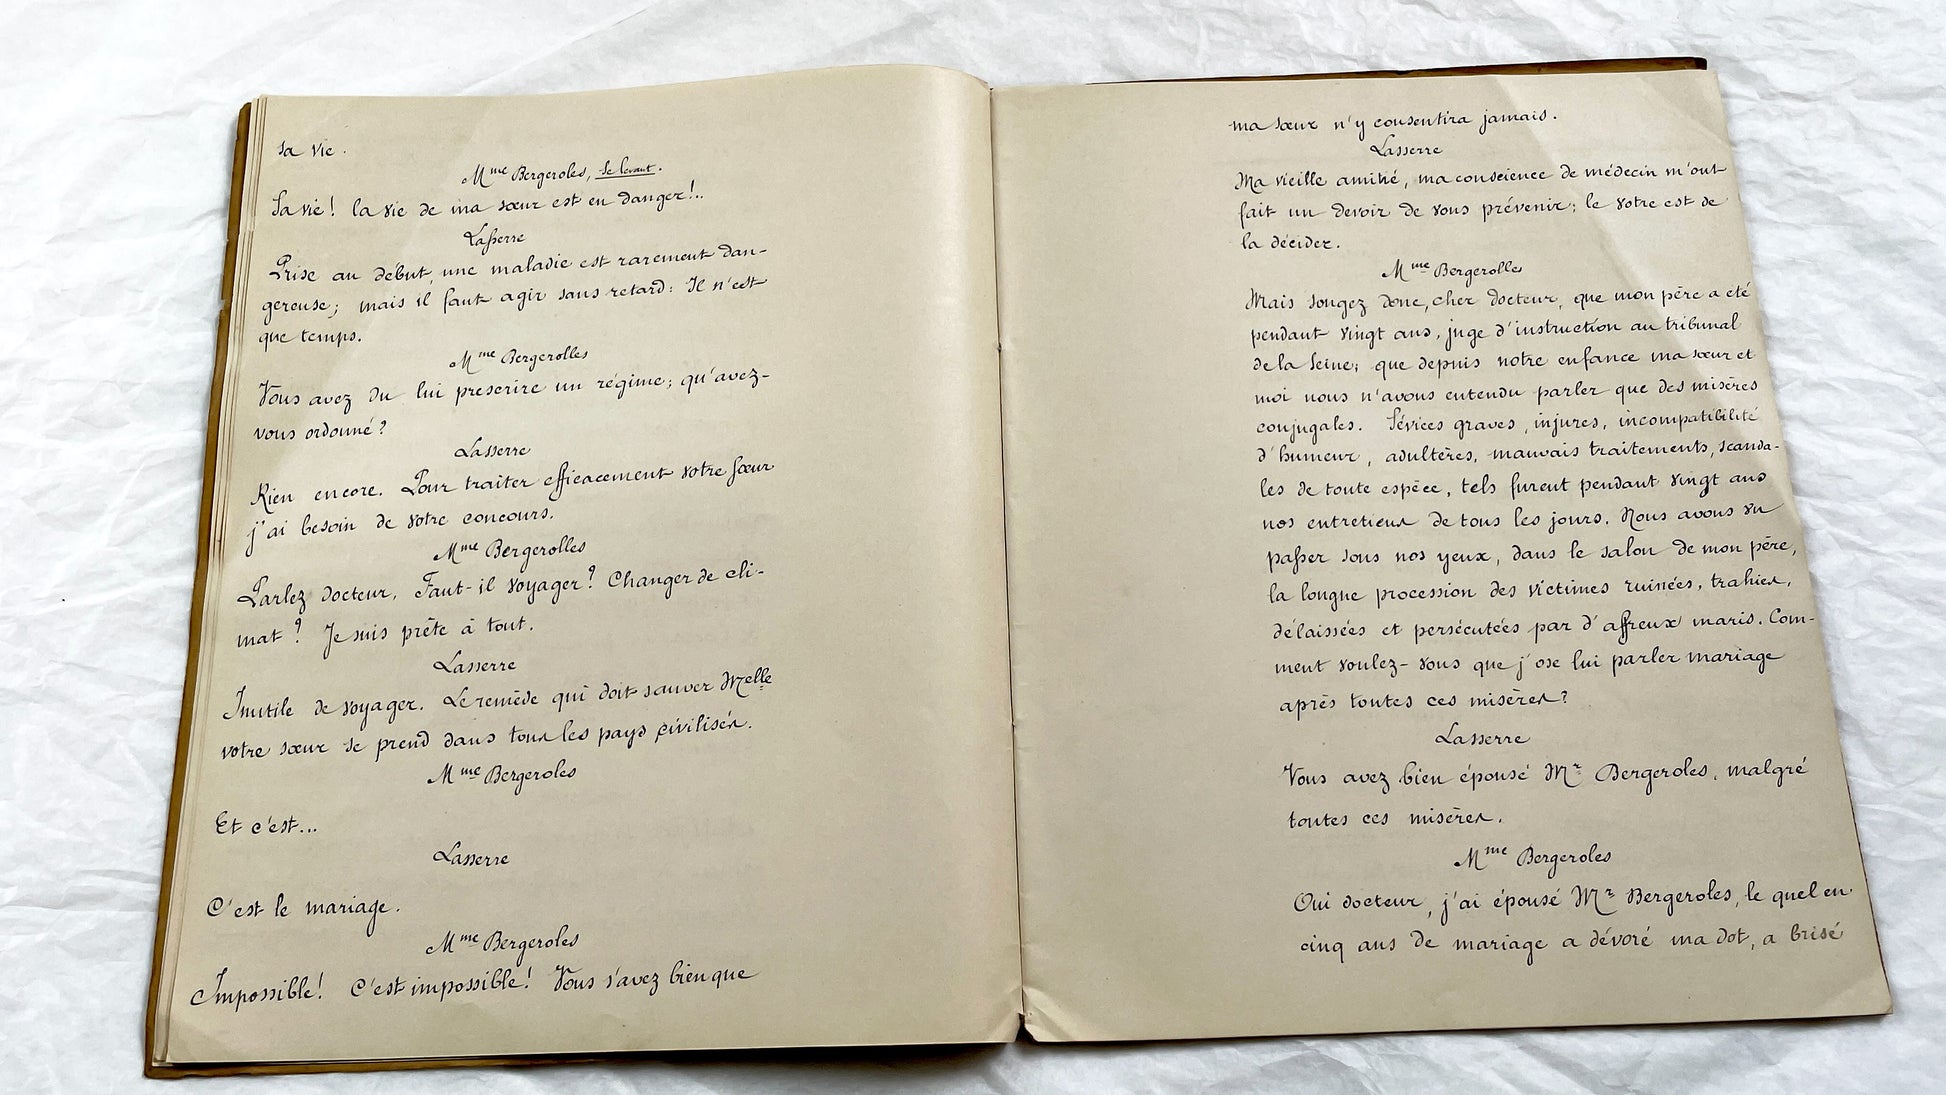 sa vie.
Mme Bergeroles, se levant.
Sa vie! la vie de ma sœur est en danger!..
Lasserre
Prise au début, une maladie est rarement dan-
gereuse; mais il faut agir sans retard: Il n'est
que temps.
Mme Bergerolles
Vous avez du lui prescrire un régime; qu'avez-
vous ordonné?
Lasserre
Rien encore. Pour traiter efficacement votre sœur
j'ai besoin de votre concours.
Mme Bergerolles
Parlez docteur. Faut-il voyager? Changer de cli-
mat? Je suis prête à tout.
Lasserre
Inutile de voyager. Le remède qui doit sauver Melle
votre sœur se prend dans tous les pays civilisés.
Mme Bergeroles
Et c'est...
Lasserre
C'est le mariage.
Mme Bergeroles
Impossible! C'est impossible! Vous s'avez bien que
ma sœur n'y consentira jamais.
Lasserre
Ma vieille amitié, ma conscience de médecin m'ont
fait un devoir de vous prévenir; le votre est de
la décider.
Mme Bergerolle
Mais songez donc, cher docteur, que mon père a été
pendant vingt ans, juge d'instruction au tribunal
de la Seine; que depuis notre enfance ma sœur et
moi nous n'avons entendu parler que des misères
conjugales. Sévices graves, injures, incompatibilité
d'humeur, adultères, mauvais traitements, scanda-
les de toute espèce, tels furent pendant vingt ans
nos entretiens de tous les jours. Nous avons vu
passer sous nos yeux, dans le salon de mon père,
la longue procession des victimes ruinées, trahies,
délaissées et persécutées par d'affreux maris. Com-
ment voulez-vous que j'ose lui parler mariage
après toutes ces misères?
Lasserre
Vous avez bien épousé Mr Bergeroles, malgré
toutes ces misères.
Mme Bergeroles
Oui docteur, j'ai épousé Mr Bergeroles, le quel en
cinq ans de mariage a dévoré ma dot, a brisé